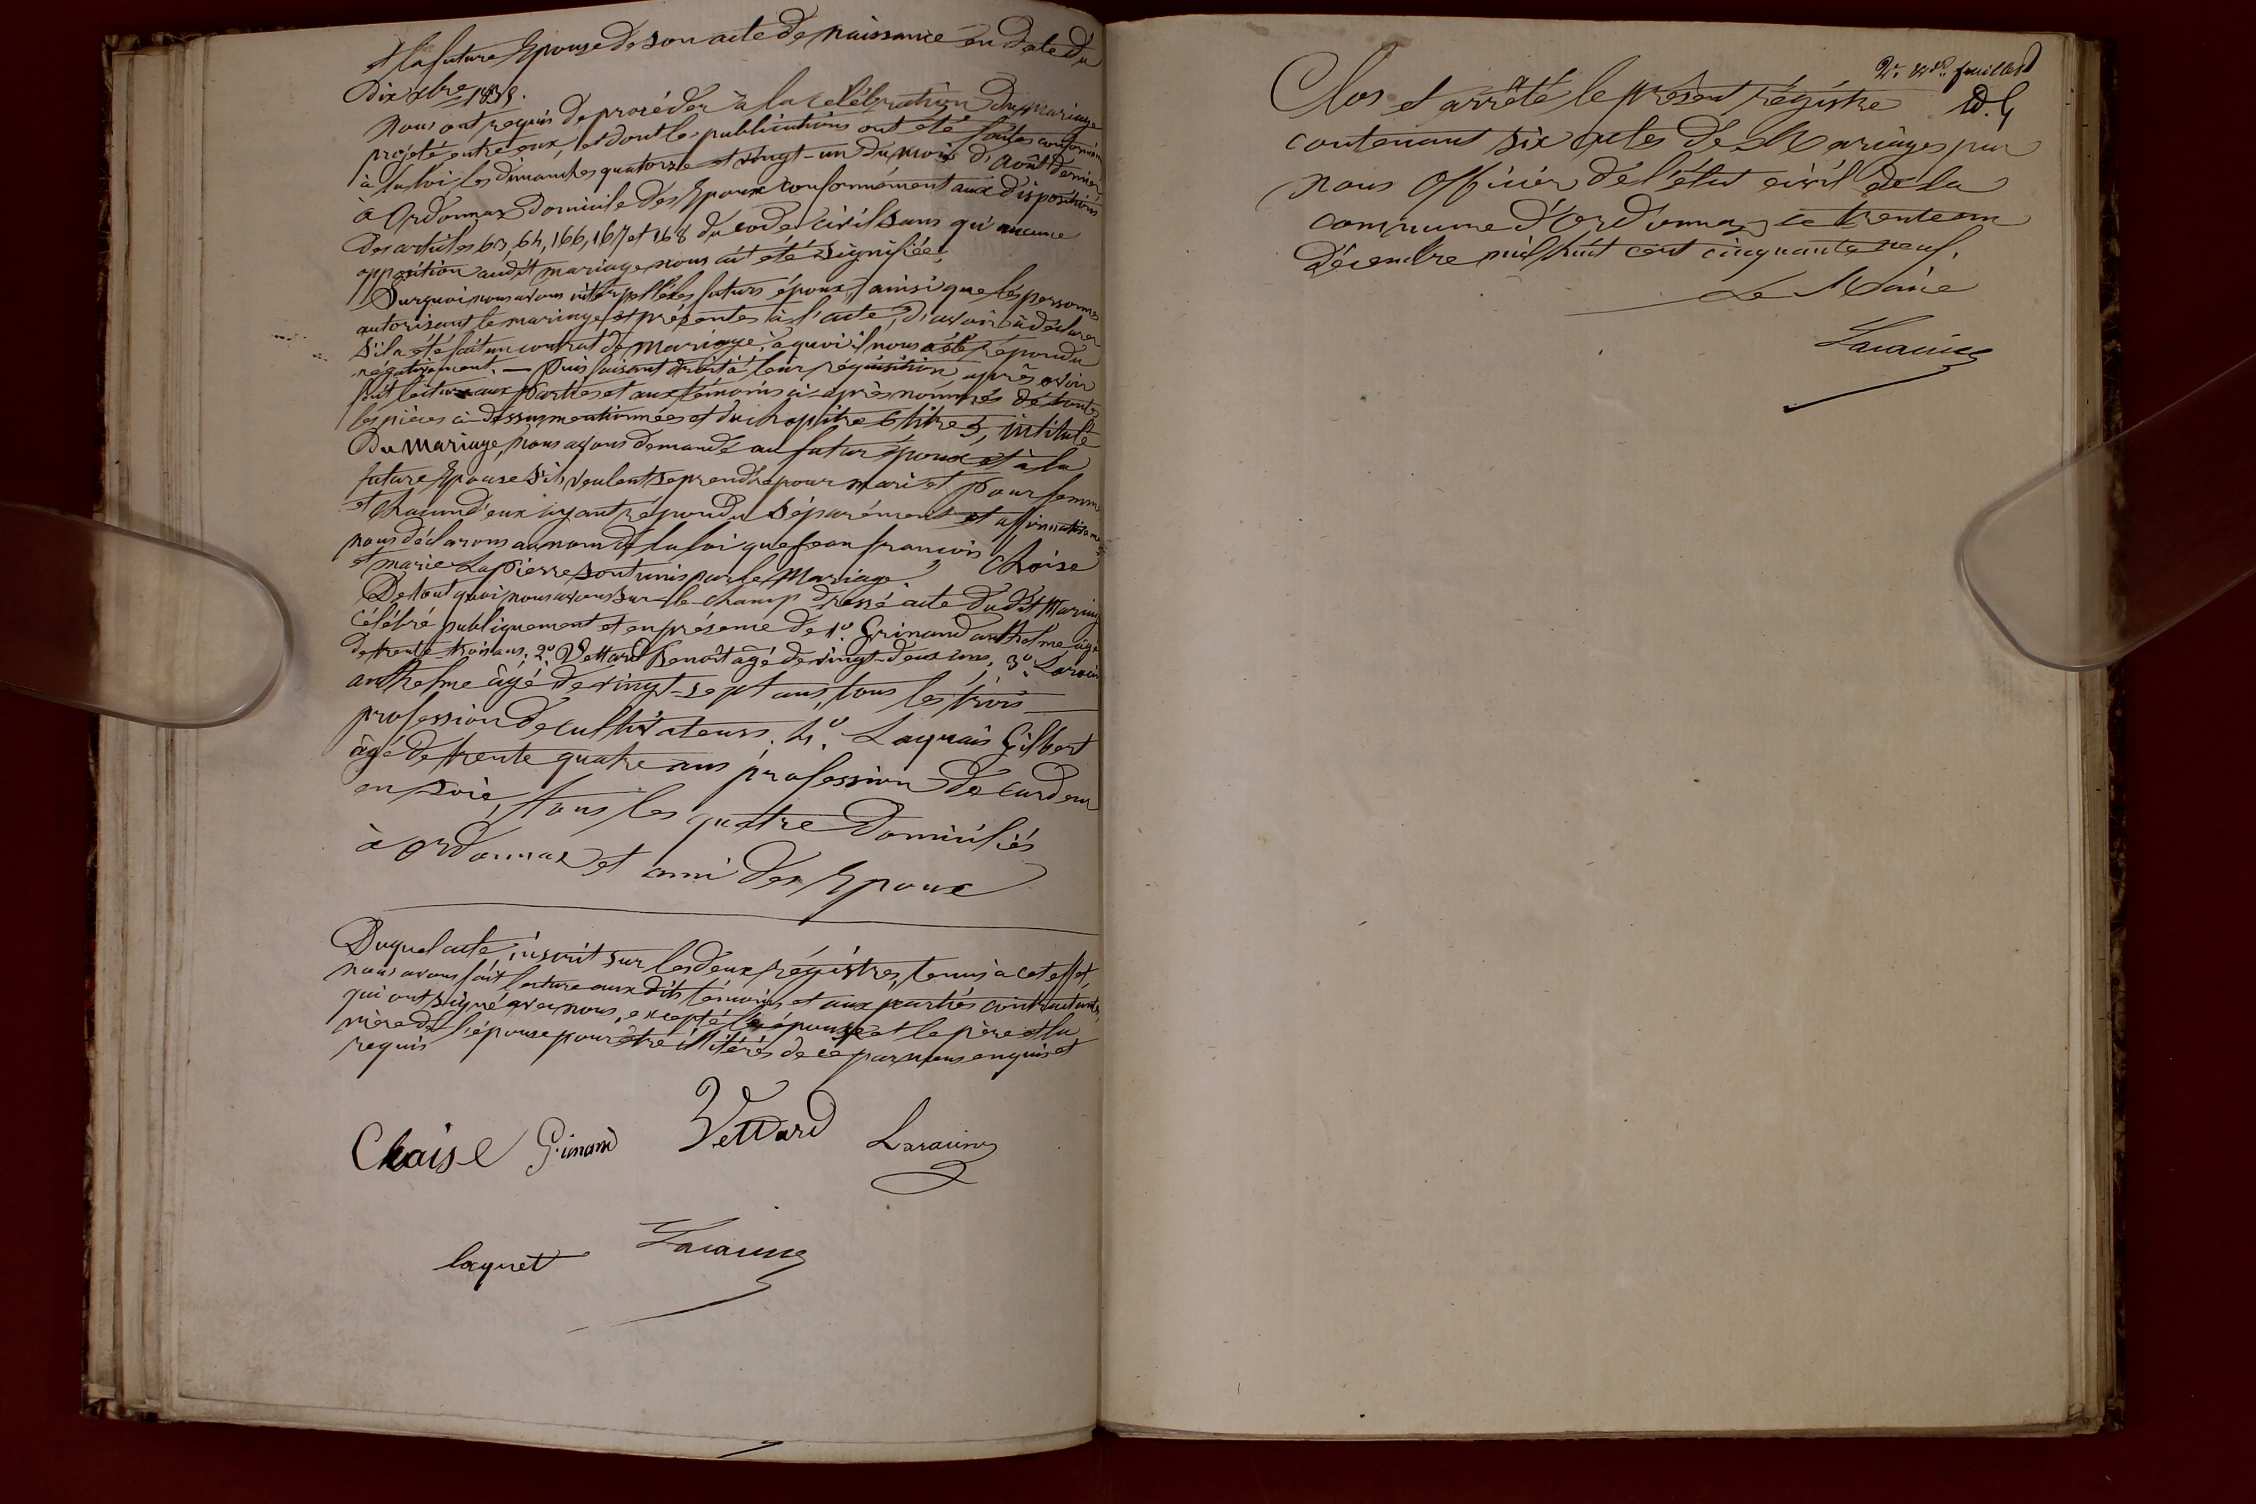 et la future Epouse de son acte de naissance en date du
Dix xbre 1838.
nous ont requis de procéder à la celébration du mariage
projeté entre eux, et dont les publications ont été faites conformém
à la loi les dimanches quatorze et vingt-un du mois d'Août dernier
à Ordonnaz domicile des Epoux conformément aux dispositions
des articles 63, 64, 166, 167 et 168 du code civil sans qu'aucune
opposition audit mariage nous ait été signifiée.
Surquoi nous avons interpellé les futurs époux, ainsi que les personnes
autorisant le mariage et présentes à l'acte, d'avoir à déclarer
s'il a été fait un contrat de mariage, à quoi il nous a été répondu
négativement. — Puis faisant droit à leur réquisition après avoir
fait lecture aux parties et aux témoins ci-après nommés de toutes
les pièces ci-dessus mentionnées et du chapitre 6 titre 5, intitulé
Du Mariage, nous avons demandé au futur époux et à la
future Epouse s'ils veulent se prendre pour mari et pour femme
et chacun d'eux ayant répondu séparément et affirmativeme
nous déclarons au nom de la loi que Jean françois Choise
et marie Lapierre sont unis par le Mariage.
De tout quoi nous avons sur-le-champ dressé acte du dit Mariag
célébré publiquement et en présence de 1º Grinand anthelme âgé
de trente-trois ans, 2º Vettard Benoît âgé de vingt-deux ans, 3º Laracin
anthelme âgé de vingt-sept ans, tous les trois
profession de cultivateurs. 4º Laquais Gilbert
âgé de trente quatre ans profession de cardeur
en soie, tous les quatre domiciliés
à Ordonnaz et ami des Epoux
Duquel acte, inscrit sur les deux régistres, tenus à cet effet,
nous avons fait lecture aux dits témoins et aux parties contractantes,
qui ont signé avec nous, excepté l'épouse et le père et la
mère de l'épouse pour être illitérés de ce par nous enquis et
requis
Chaise Grinand Vettard Laracine
laquet Laracine
2e. feuillet
Clos et arrêté le présent régistre
contenant six actes de Mariages par
nous Officier de l'état civil de la
commune d'Ordonnaz ce trente un
décembre mil huit cent cinquante neuf.
Le Maire
Laracine